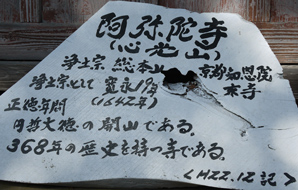 阿弥陀寺
(心光山)
浄土宗 総本山 京都知恩院 末寺
浄土宗として 寛永19年
(1642年)
正徳年間
円哲大徳の開山である。
368年の歴史を持つ寺である。
<H22.12記>